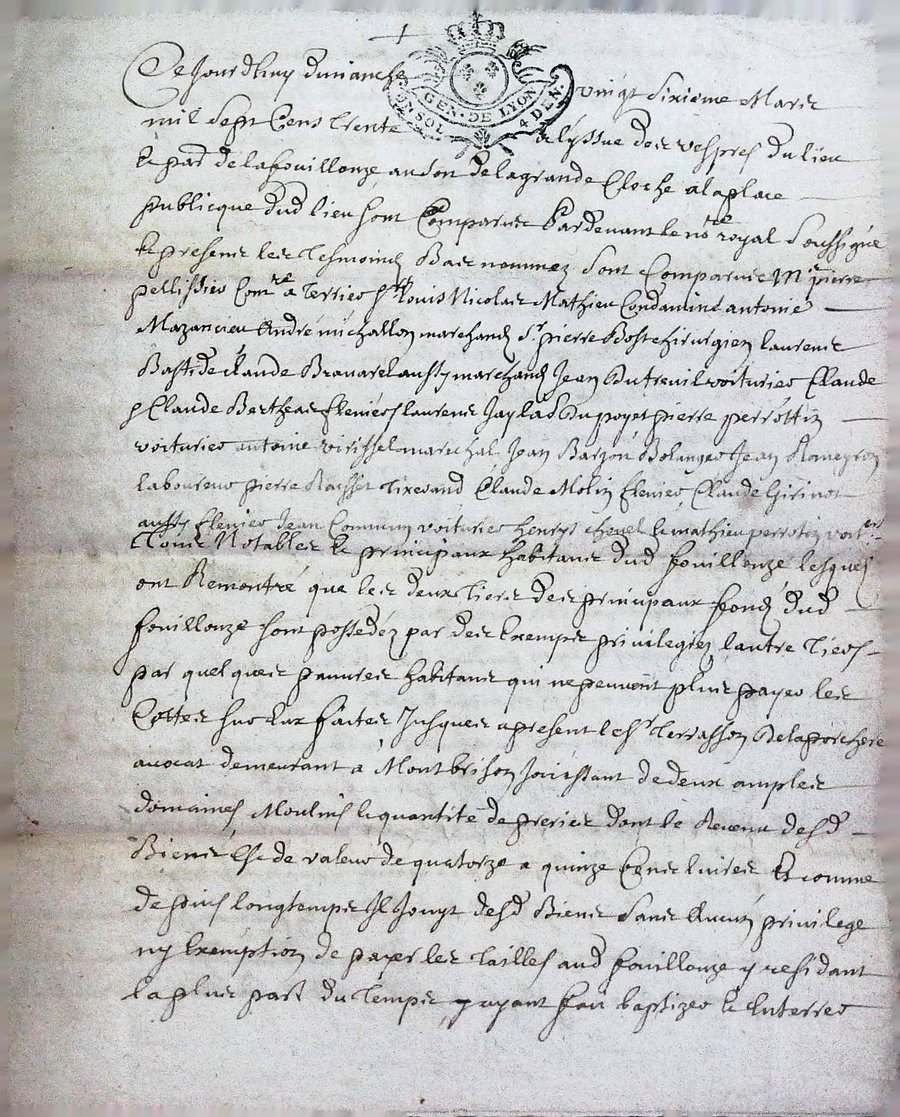 Ce Jourdhuy dimanche vingt sixieme Mars
GEN. DE LYON
UN SOL 4 DEN.
mil sept Cens trente a lyssue des vespres du lieu
& par de lafouillouze au son de lagrande Cloche a laplace
publicque dud lieu sont Comparus Pardevant le no.re royal soussigné
& presens les Tesmoins Bas nommez sont Comparus M.e pierre
pellissier Com.re a Terrier s.r Louis Nicolas Mathieu Condamine antoine
Mazancieu Andre michallon marchands S.r pierre Bost chirurgien laurens
Bastide Claude Bravarel aussy marchands Jean Dutreuil voiturier Claude
& Claude Bertheas laurens Jaylas Dupoyet pierre perrottin
voiturier antoine marechal Jean Barjon Bolanger Jean Romeyron
laboureur pierre Rachet Tixerand Claude Molin Claude Girinot
aussy Jean Commun voiturier henry & mathieu perrotin voit.rs
Tous Notables & principaux habitans dud fouillouze lesquels
ont Remontré que les deux tiers des principaux fonds dud
fouillouze sont possedez par des Exempts privilegiez lautre Tiers
par quelques pauvres habitans qui ne peuvent plus payer les
Cottes sur Eux faites Jusques apresent le s.r Terrasson Delaporchere
avocat demeurant a Montbrison Jouissant de deux amples
domaines Moulins & quantité de preries dont le Revenu desd
Biens Est de valeur de quatorze a quinze Cens livres Et comme
depuis longtemps Il Jouyt desd Biens sans Aucun privilege
ny Exemption de payer les Tailles aud fouillouze y residant
la plus part du Temps, y ayant fait baptizer & Enterrer